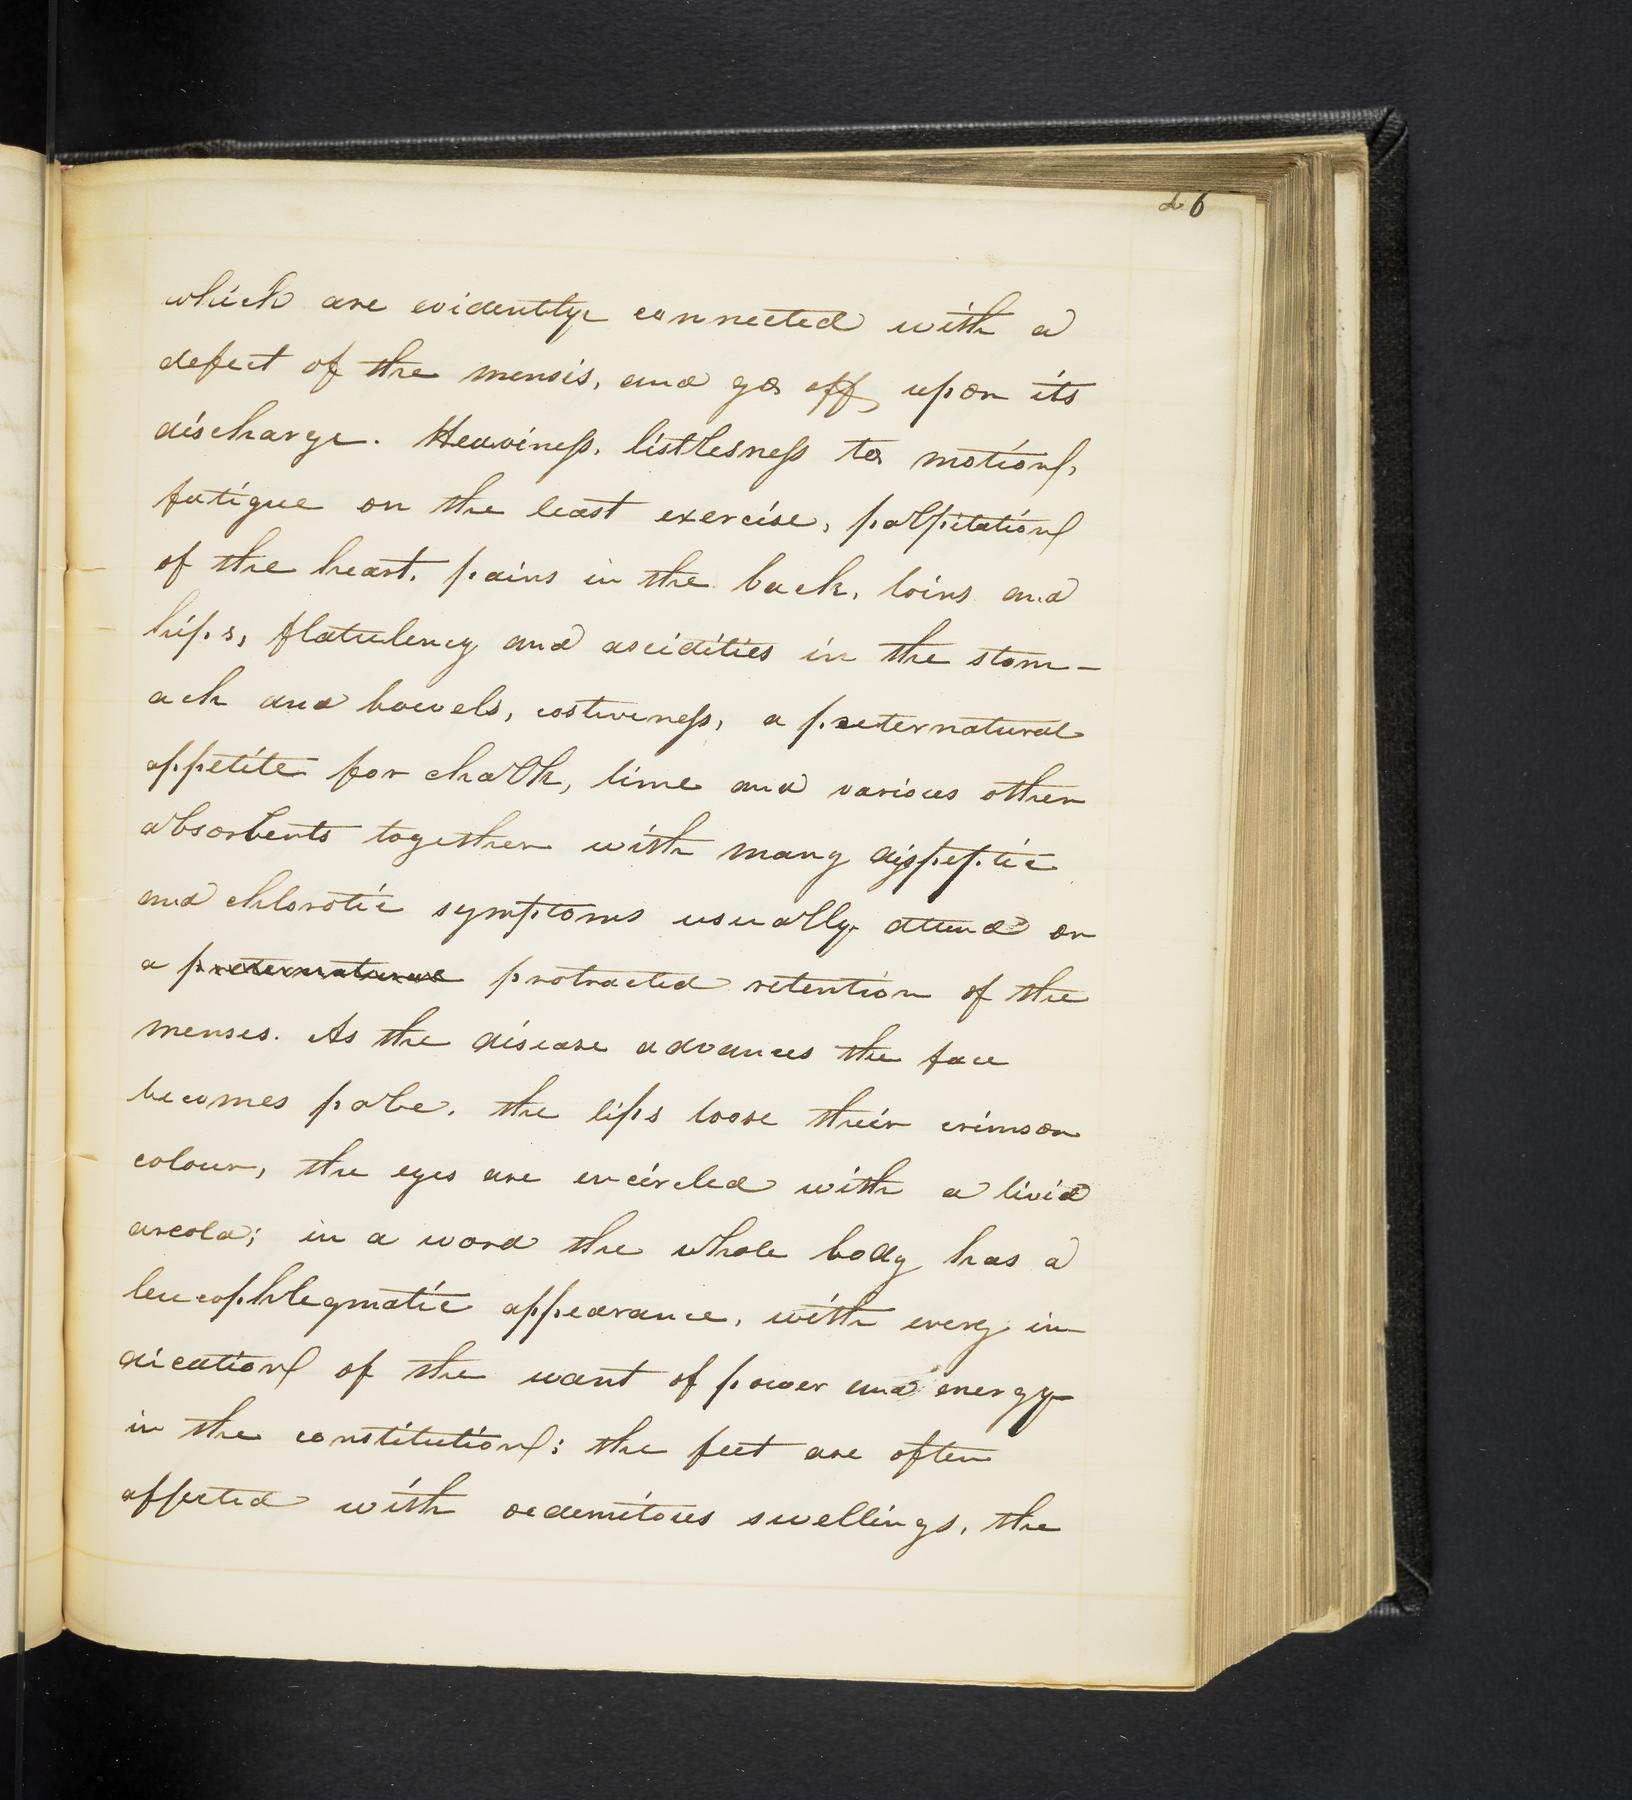 26
which are evidently connected with a
defect of the mensis, and go off upon its
discharge. Heaviness, listlesness to motion,
fatigue on the least exercise, palpitation
of the heart, pains in the back, loins and
hips, flatulency and ascidities in the stom-
ach and bowels, costiveness, a preternatural
appetite for chalk, lime and various other
absorbents together with many dyspeptic
and chlorotic symptoms usually attend on
a preternatural protracted retention of the
menses. As the disease advances the face
becomes pale, the lips loose their crimson
colour, the eyes are encircled with a livid
areola; in a word the whole body has a
leucophlegmatic appearance, with every in-
dication of the want of power and energy
in the constitution; the feet are often
affected with oedemitous swellings, the